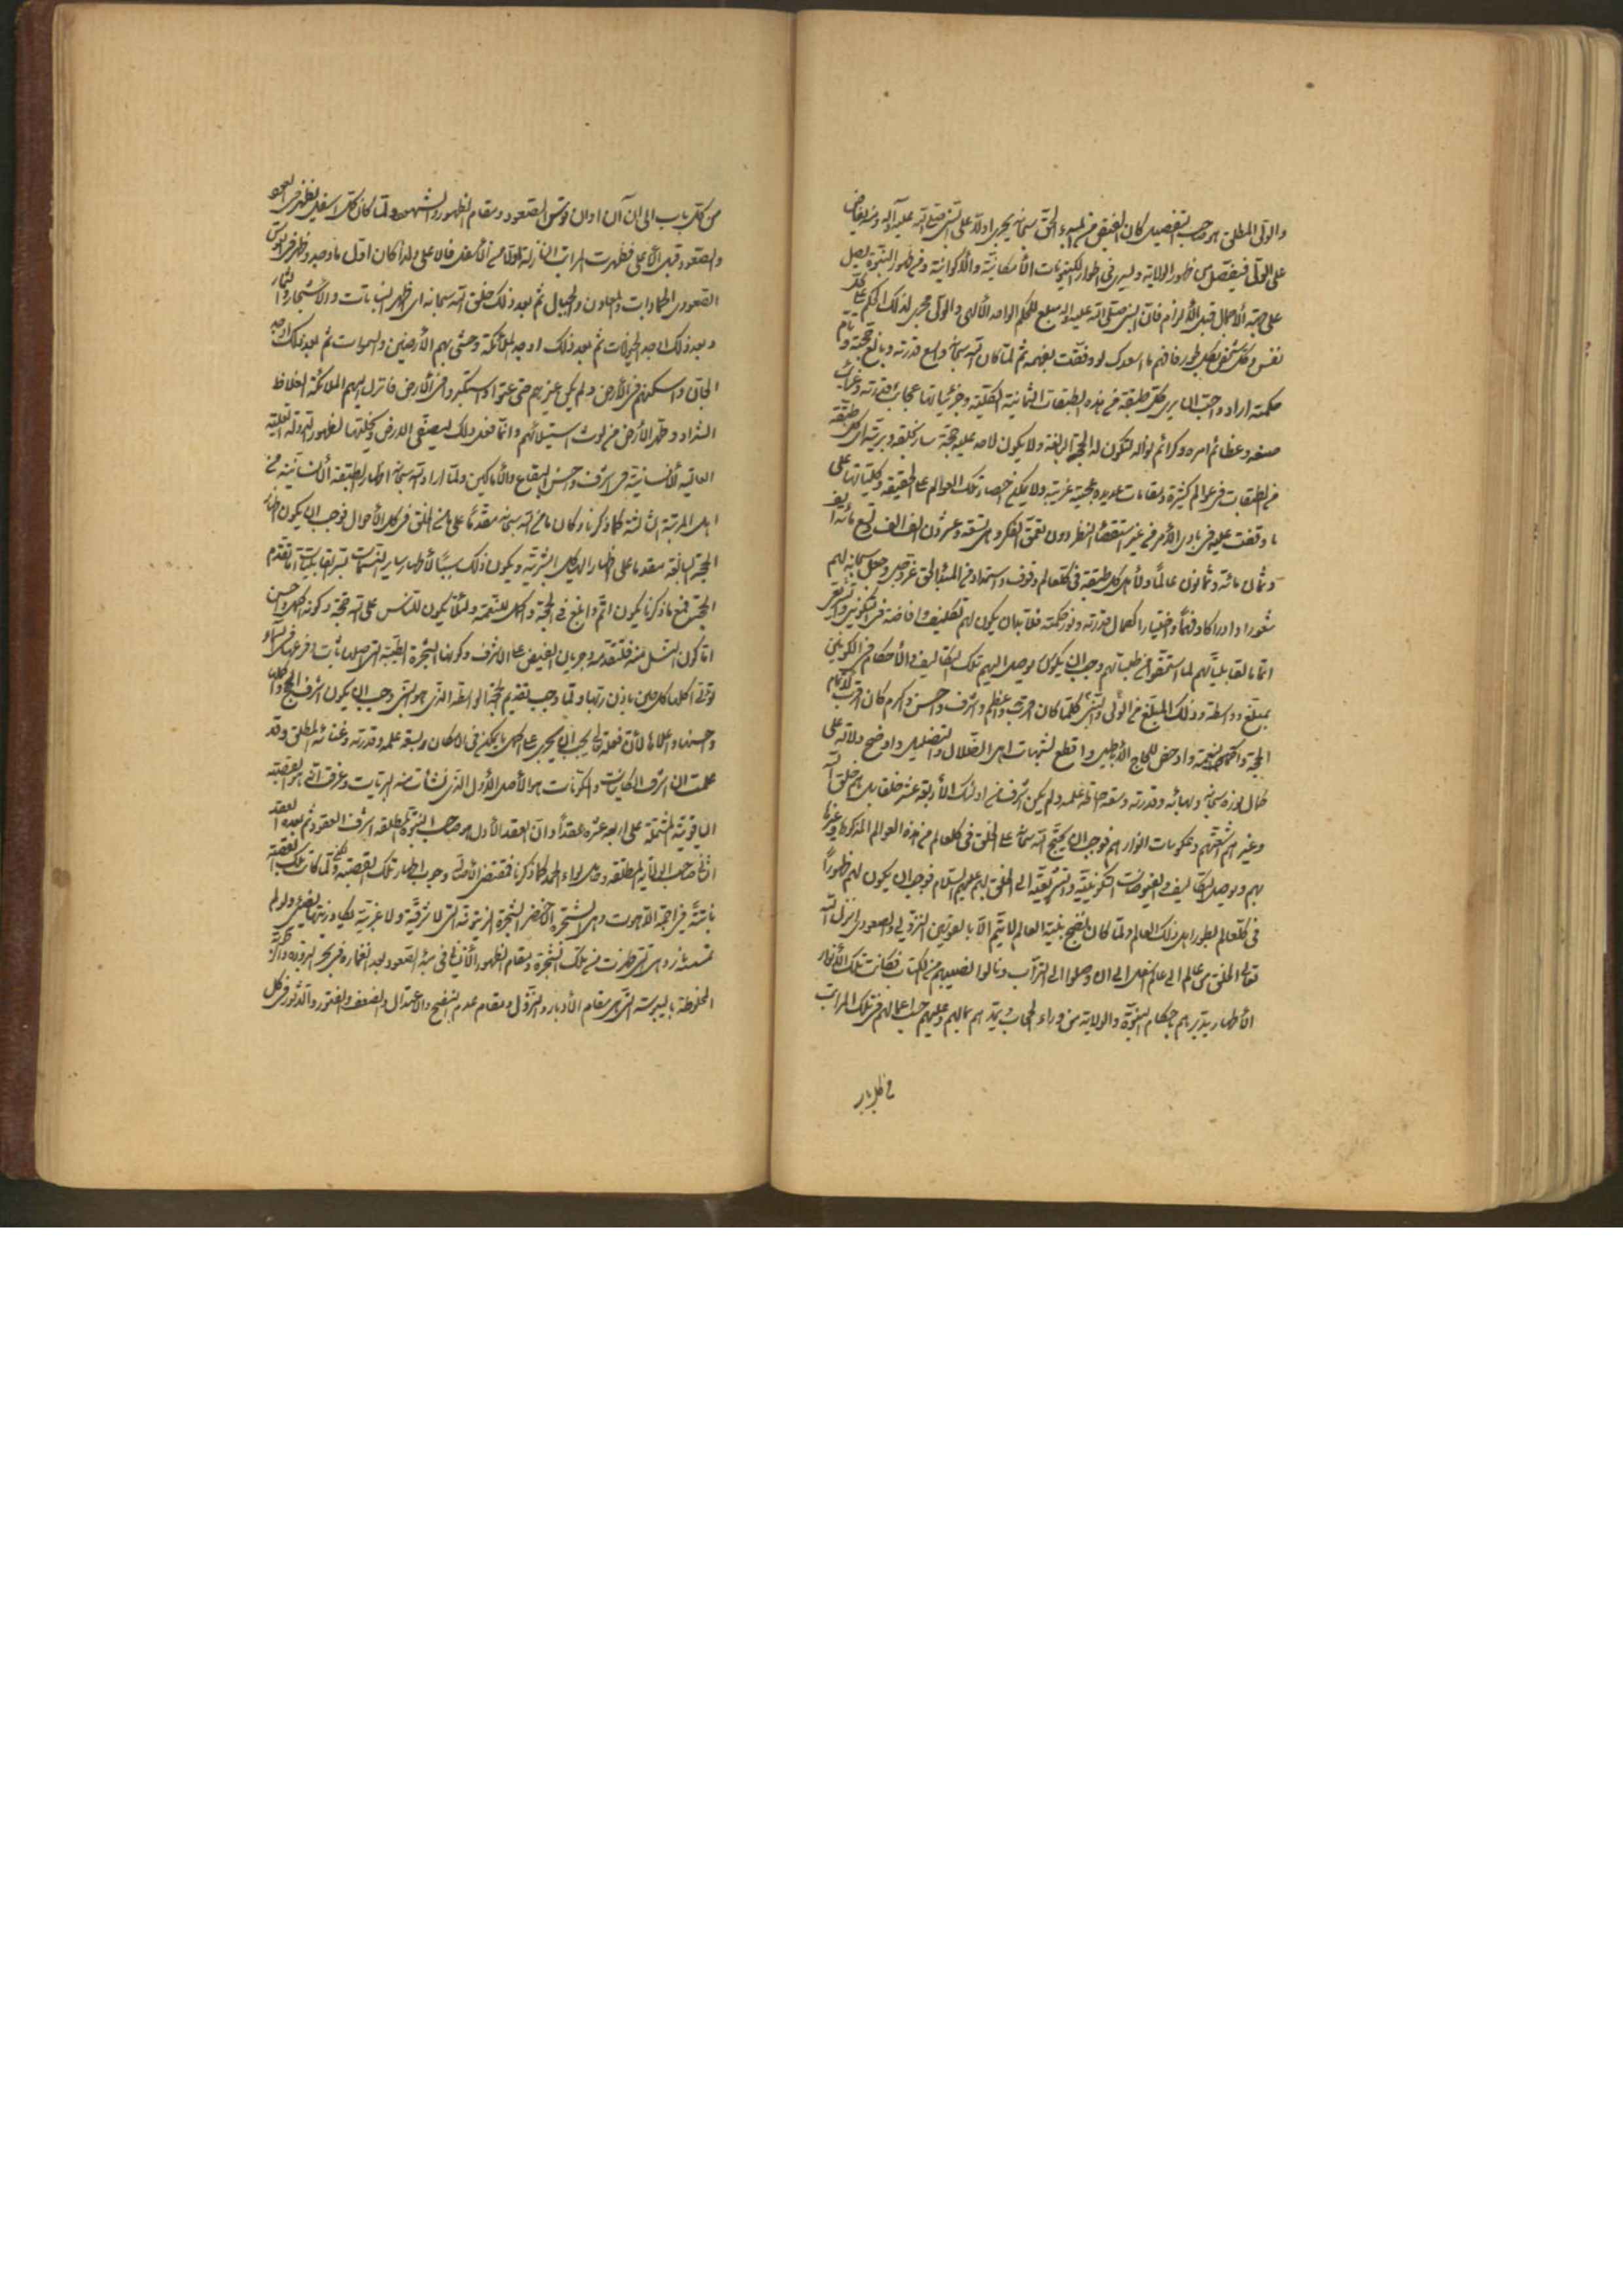 والولى المطلق هو صاحب التفصيل كان الفيض من المبدء الحق سبحانه يجرى اولا على النبى صلى الله عليه وآله ومنه يفاض
على الولى فيفصل من ظهور الولاية ويسرى فى اطوار الكينونات الأمكانية والأكوانية وفى ظهور النبوة يصل
على جهة الأجمال قبل الألزام فان النبى صلى الله عليه واله مبلغ للحكم الواحد الألهى والولى مجرى لذلك الحكم على كل
نفس وكل شخص بكل طور فافهم ما اسعدك لو وفقت بفهمه ثم لما كان الله سبحانه واسع قدرته وبالغ حجته وتام
حكمته اراد واحب ان يرى كل طبقة من هذه الطبقات الثمانية الكلية وجزئياتها عجايب قدرته وغرايب
صنعه وعظائم امره وكرائم نواله لتكون له الحجة البالغة ولا يكون لاحد عليه حجة ساير خلقه وبريته اهل كل طبقة
من الطبقات فى عوالم كثيرة ومقامات عديدة وعجيبة غريبة ولا يمكن احصاء تلك العوالم على الحقيقة وكلياتها على
ما وقفت عليه فى بادى الأمر من غير استقصاء النظر دون تعمق الفكر وهى تسعة وعشرون الف الف وتسع مائة الف
وثمان مائة وثمانون عالماً ولأهل كل طبقة فى كل عالم وقوف واستمداد من المبدء الحق عز وجل وجعل سبحانه لهم
شعورا وادراكا وفهماً واختيارا لكمال قدرته ونور حكمته فلا بد ان يكون لهم تكليف وافاضة فى التكوين والتشريع
اتما لقابلياتهم لما استحقوا من طلباتهم وجب ان يكون يوصل اليهم تلك التكاليف والأحكام فى الكونين
بمبلغ وواسطة وذلك المبلغ هو الولى والنبى وكلما كان اقرب واعظم واشرف واحسن واكرم كان اقرب لاتمام
الحجة واكمل للنعمة وادحض للحجاج الأباطيل واقطع لشبهات اهل الضلال والتضليل واوضح دلالة على
كمال نوره سبحانه وبهائه وقدرته وسعة احاطة علمه ولم يكن اشرف من اولئك الأربعة عشر خلقا بل هم خلق الله
وغيرهم اشعتهم وعكوسات انوارهم فوجب ان يحتج الله سبحانه على الخلق فى كل عالم من هذه العوالم المذكورة وغيرها
بهم ويوصل التكاليف والفيوضات التكوينية والتشريعية الى الخلق بهم عليهم السلام فوجب ان يكون لهم ظهوراً
فى كل عالم بطور اهل ذلك العالم ولما كان نضج بنية العالم لا يتم الا بالقوسين النزولى والصعودى انزل الله
تعالى الخلق من عالم الى عالم اسفل الى ان وصلوا الى التراب ونالوا نصيبهم من الكتاب فكانت تلك الأنوار
الأطهار يدبرهم باحكام النبوة والولاية من وراء الحجاب ويمدهم بما لهم وعليهم حسب اعمالهم فى تلك المراتب
من كل باب
من كل باب الى ان آن اوان قوس الصعود ومقام الظهور والشهود ولما كان كل اسفل يظهر فى القوس
والصعود قبل الأعلى فظهرت المراتب النازلة اولا من الأسفل فالاعلى ولذا كان اول ما وجد وظهر فى القوس
الصعودى الجمادات والمعادن والجبال ثم بعد ذلك خلق الله سبحانه اى اظهر النباتات والأشجار والثمار
وبعد ذلك اوجد الحيوانات ثم بعد ذلك اوجد الملائكة وحشى بهم الأرضين والسموات ثم بعد ذلك اوجد
الجان واسكنهم فى الأرض ولم يكن غيرهم حتى عتوا واستكبروا فى الأرض فانزل اليهم الملائكة الغلاظ
الشداد وطهر الأرض من لوث استيلائهم وانما فعل ذلك ليصفى الارض ويخليها لظهور الدولة العلية
العالية الأنسانية فى اشرف واحسن البقاع والأماكن ولما اراد الله سبحانه اظهار الطبقة الأنسانية من
اهل المرتبة الثالثة كما ذكرنا وكان ما من الله سبحانه مقدماً على ما من الخلق فى كل الأحوال فوجب ان يكون اظهار
الحجة البالغة مقدما على اظهار الهياكل البشرية ويكون ذلك سبباً لأظهار ساير النسمات بشر القابليات اما تقدم
الحجة فمع ما ذكرنا يكون اتم وابلغ فى الحجة واكمل للنعمة ولئلا يكون للناس على الله حجة وكونه اكمل واحسن
اما كون النسل منه فلتقدمه وجريان الفيض على الأشرف وكونها الشجرة الطيبة التى اصلها ثابت وفرعها فى السماء
تؤتى اكلها كل حين باذن ربها ولما وجب تقديم الحجة الواسطة الذى هو النبى وجب ان يكون اشرف الحجج واكملها
واحسنها واعلاها لأن فعله تعالى يجب ان يجرى على اكمل ما يمكن فى الامكان وبسعة علمه وقدرته وغنائه المطلق وقد
علمت ان اشرف الكاينات والمكونات هو الأصل الأول الذى نشأت منه البريات وعرفت انه هو القصبة
الياقوتية المشتملة على اربعة عشر عقداً وان العقد الأول هو صاحب النبوة المطلقة اشرف العقود ثم بعده العقد
الثانى صاحب الولاية المطلقة وحامل لواء الحمد كما ذكرنا فمقتضى الأصل وجوب اظهار تلك القصبة ولما كانت تلك القصبة
نابتة فى اجمة اللاهوت وهى الشجر الاخضر الشجرة الزيتونة التى لا شرقية ولا غربية يكاد زيتها يضىء ولو لم
تمسسه نار وهى التى ظهرت من تلك الشجرة ومقام الظهور الأنسانى فى مبدء الصعود بعد انغماره فى بحر البرودة والرطوبة
المخلوطة باليبوسة التى هى مقام الأدبار والنزول ومقام عدم النضج والاعتدال والضعف والفتور والدثور فى كل